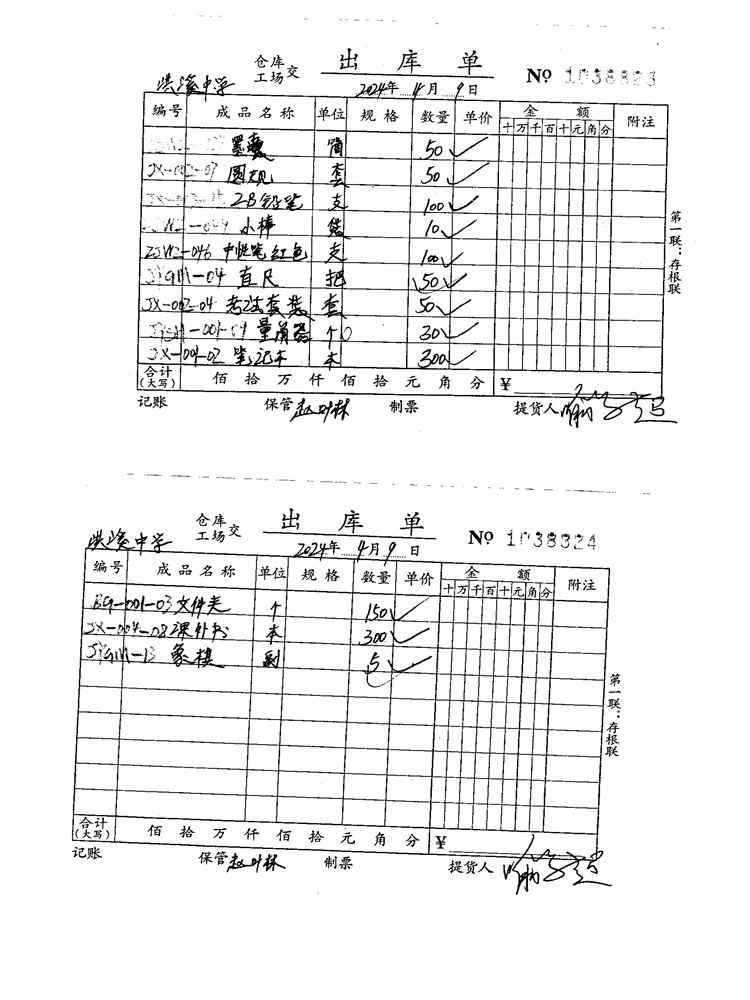 仓库
工场 交 出库单 № 1038823
洪溪中学 2024年 4月 9日
编号 成品名称 单位 规格 数量 单价 金额 附注
十万千百十元角分
50
圆规 套 50
2B铅笔 支 100
小棒 袋 10
ZJWJ-046 中性笔红色 支 100
直尺 把 50
JX-002-04 考试套装 套 50
量角器 个 30
JX-004-02 笔记本 本 300
合计
(大写) 佰拾万仟佰拾元角分 ¥
记账 保管 赵叶林 制票 提货人
第一联：存根联
仓库
工场 交 出库单 № 1038824
洪溪中学 2024年 4月 9日
编号 成品名称 单位 规格 数量 单价 金额 附注
十万千百十元角分
BG-001-03 文件夹 个 150
JX-004-08 课外书 本 300
象棋 副 5
合计
(大写) 佰拾万仟佰拾元角分 ¥
记账 保管 赵叶林 制票 提货人
第一联：存根联